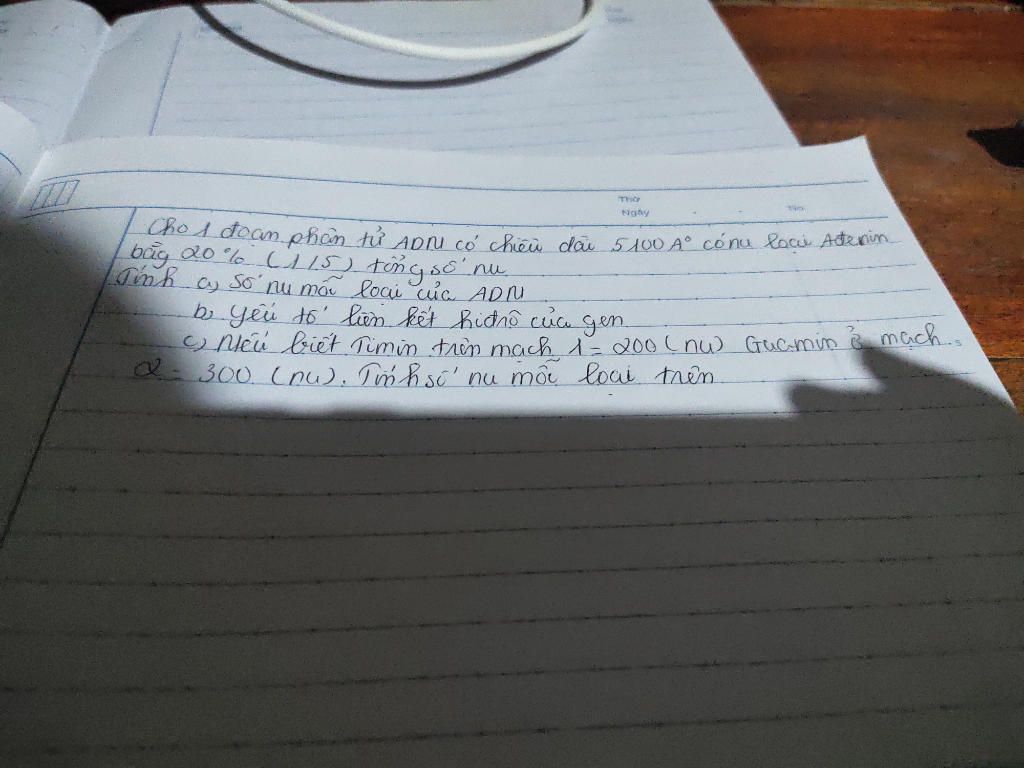 Thứ
Ngày No.
Cho 1 đoạn phân tử ADN có chiều dài 5100 A° có nu loại Adenin
bằg 20% (1/5) tổng số nu
Tính a, Số nu mỗi loại của ADN
b, yếu tố liên kết hiđrô của gen
c, Nếu biết Timin trên mạch 1 = 200 (nu) Guamin ở mạch
2 = 300 (nu). Tính số nu mỗi loại trên